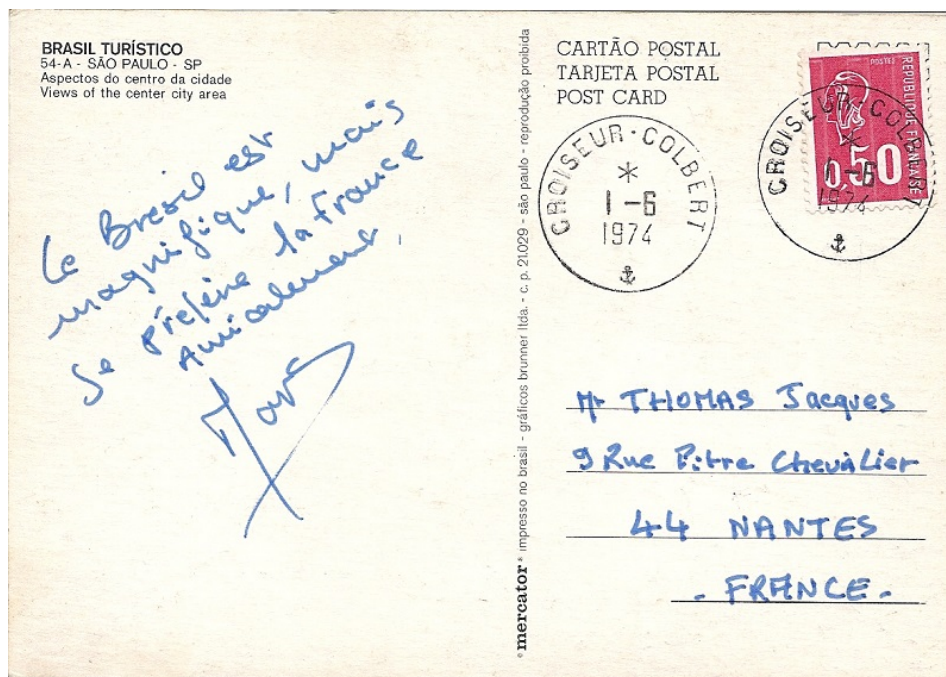 BRASIL TURÍSTICO
54-A - SÃO PAULO - SP
Aspectos do centro da cidade
Views of the center city area
Le Brésil est
magnifique, mais
Je préfère la France
Amicalement,
mercator impresso no brasil - gráficos brunner ltda. - c. p. 21.029 - são paulo - reprodução proibida
CARTÃO POSTAL
TARJETA POSTAL
POST CARD
CROISEUR-COLBERT
1-6
1974
POSTES
REPUBLIQUE FRANÇAISE
0,50
CROISEUR-COLBERT
1-6
1974
Mr THOMAS Jacques
9 Rue Pitre Chevalier
44 NANTES
- FRANCE -